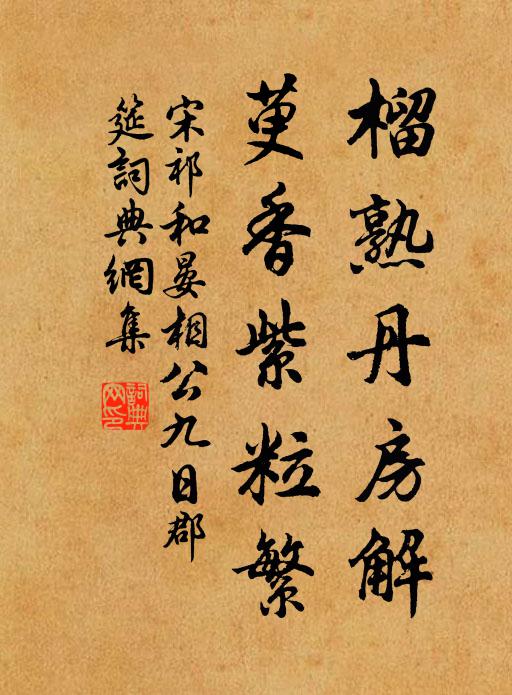 榴熟丹房解
萸香紫粒繁
宋祁和晏相公九日郡
筵詞典網集
詞典網印